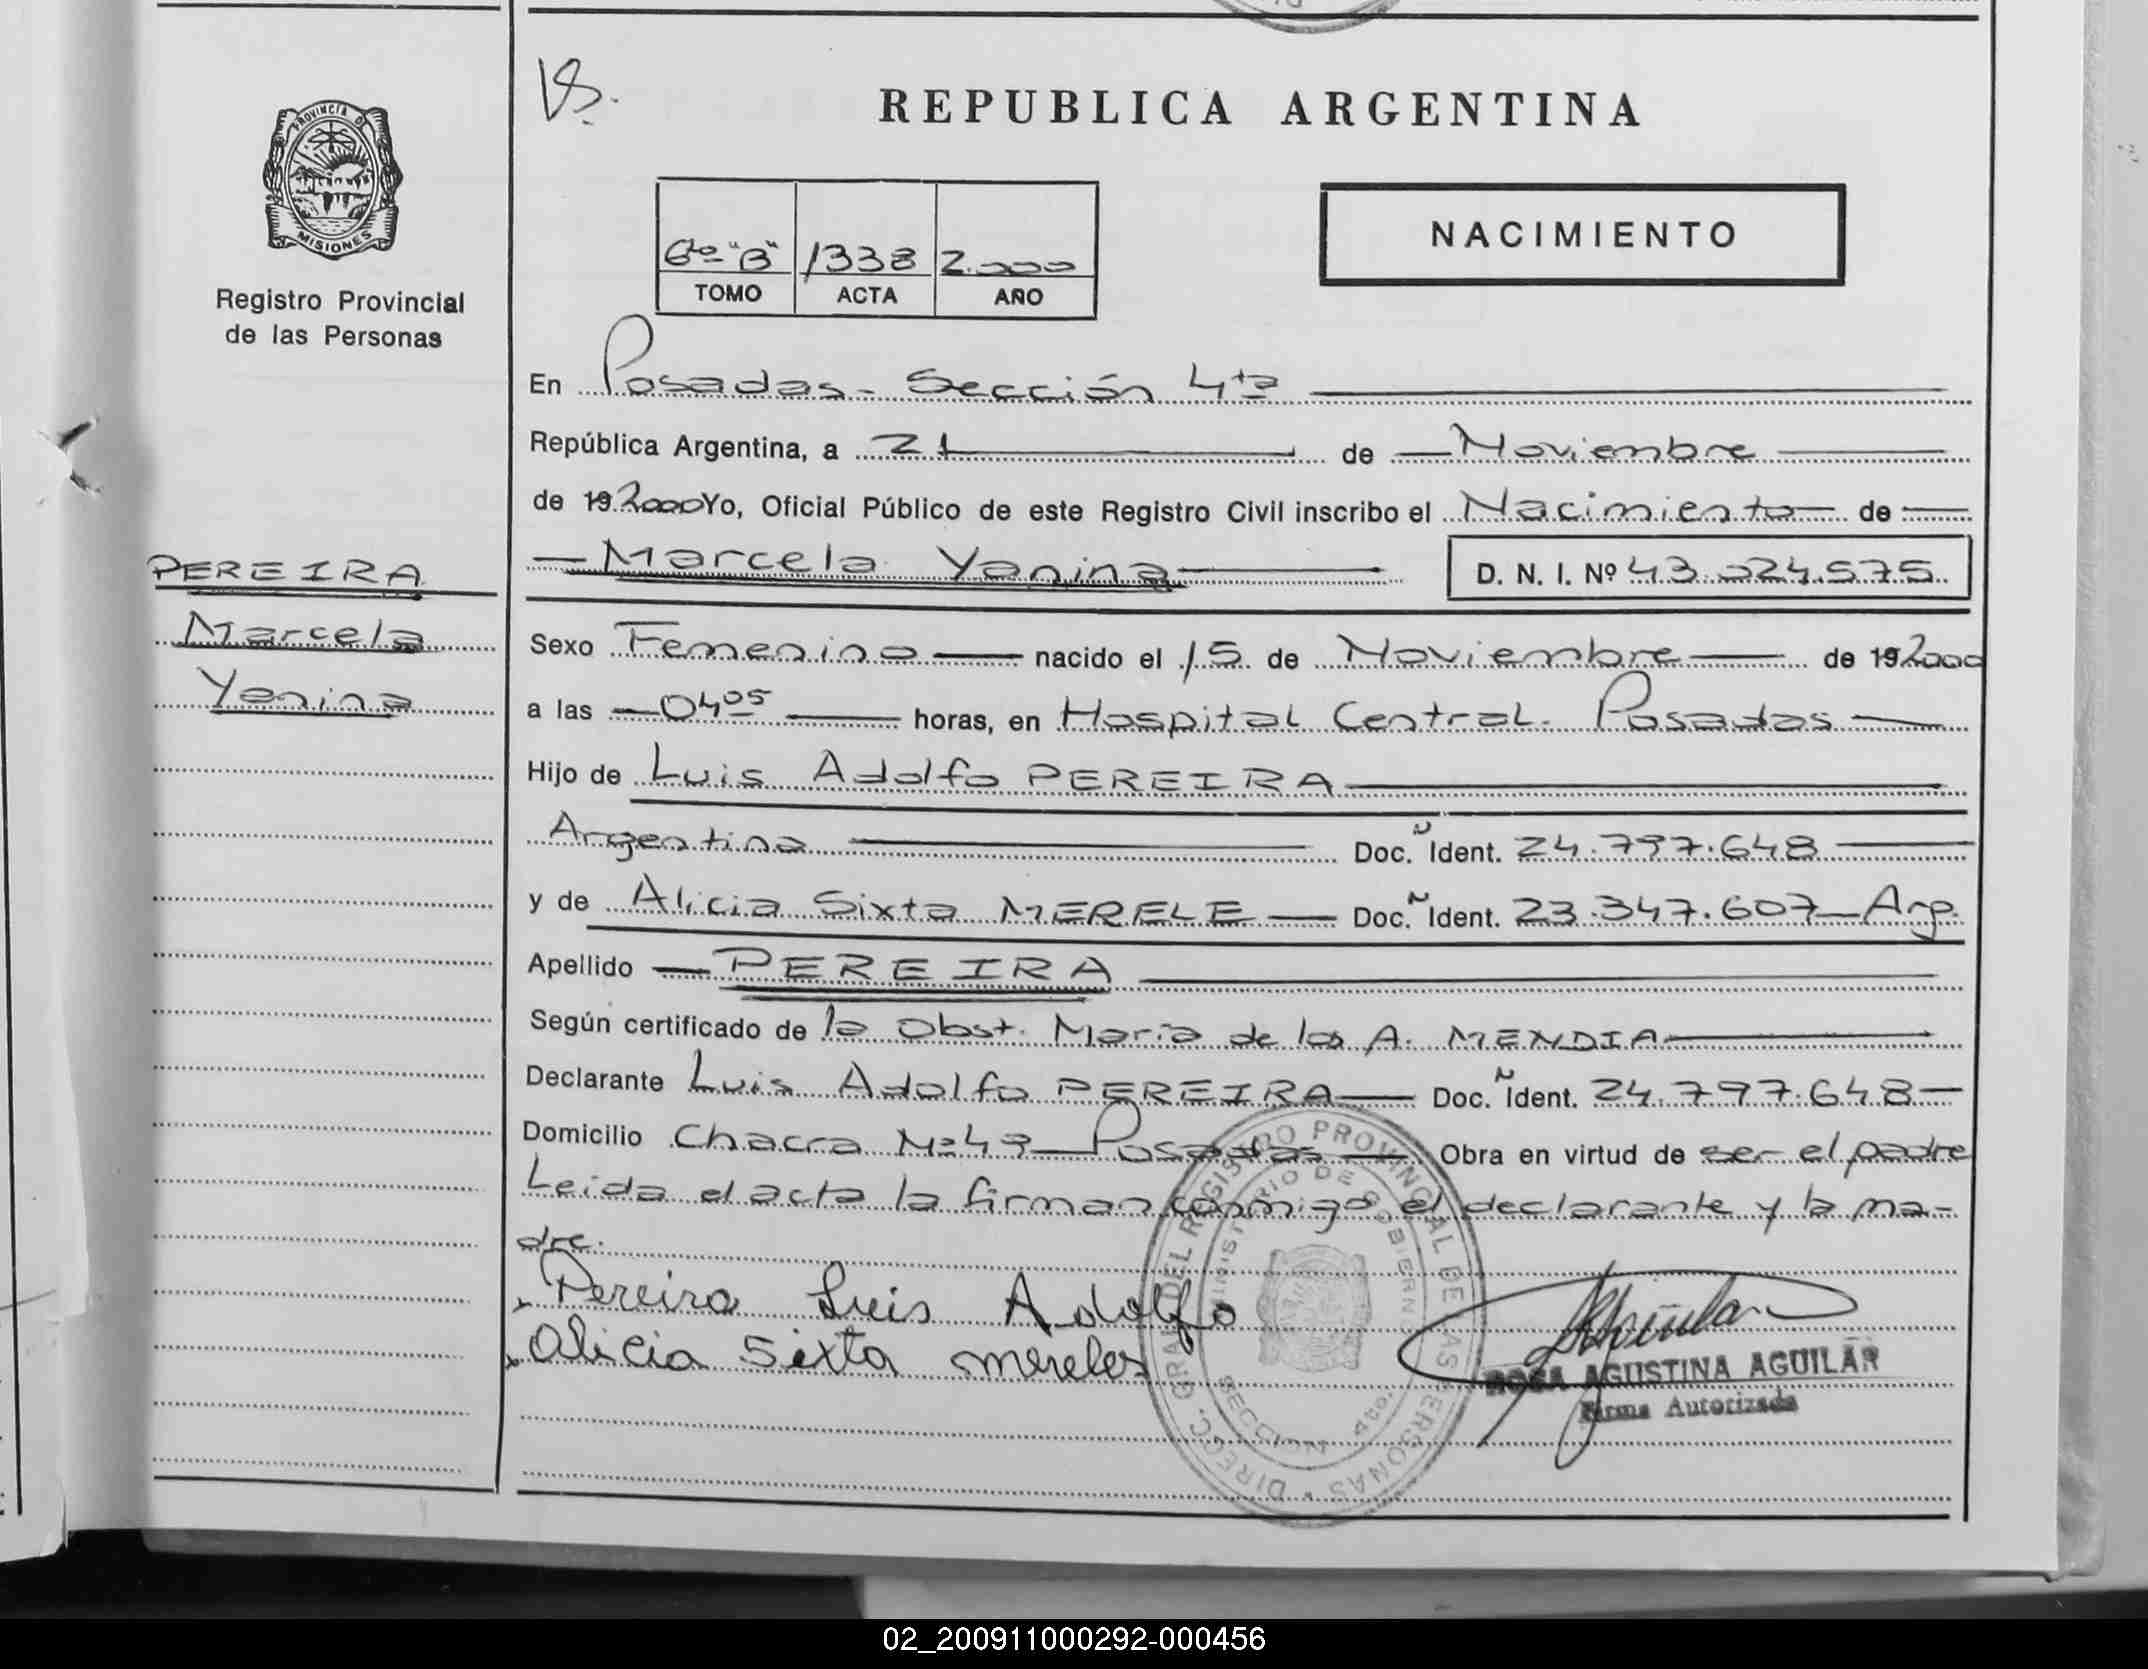 REPUBLICA ARGENTINA
PROVINCIA DE
MISIONES
Registro Provincial
de las Personas
6to "B" 1338 2.000
TOMO ACTA AÑO
NACIMIENTO
En Posadas - Sección 4ta
República Argentina, a 21 de Noviembre
de 19 2000 Yo, Oficial Público de este Registro Civil inscribo el Nacimiento de
Marcela Yanina D. N. I. Nº 43.024.575
PEREIRA
Marcela
Yanina
Sexo Femenino nacido el 15 de Noviembre de 19 2000
a las 04 05 horas, en Hospital Central. Posadas
Hijo de Luis Adolfo PEREIRA
Argentina Doc. Ident. 24.797.648
y de Alicia Sixta MERELE Doc. Ident. 23.347.607 Arg.
Apellido PEREIRA
Según certificado de la Obst. María de los A. MENDIA
Declarante Luis Adolfo PEREIRA Doc. Ident. 24.797.648
Domicilio Chacra Nº 49 Posadas Obra en virtud de ser el padre
Leida el acta la firman conmigo el declarante y la ma-
dre.
Pereira Luis Adolfo
Alicia Sixta mereles
DIRECC. GRAL. DEL REGISTRO PROVINCIAL DE LAS PERSONAS
MINISTERIO DE GOBIERNO
SECCION 4ta.
ROSA AGUSTINA AGUILAR
Firma Autorizada
02_200911000292-000456